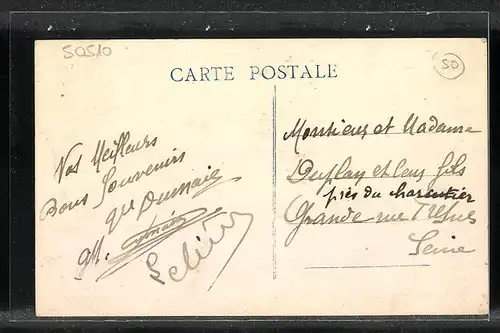 50510
50
CARTE POSTALE
Nos Meilleurs
Bons Souvenirs
M.
Monsieur et Madame
Duflay et leus fils
près du charcutier
Grande rue
Seine